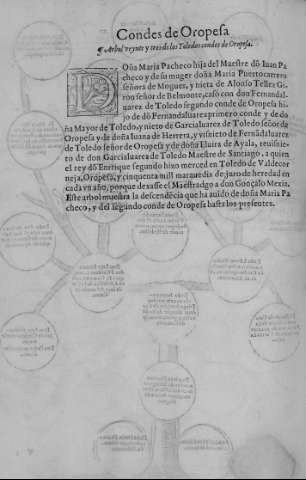 Condes de Oropesa
¶ Arbol veynte y tres de los Toledos condes de Oropesa.
DOña Maria Pacheco hija del Maestre dõ Iuan Pa
checo y de su muger doña Maria Puertocarrero
señora de Moguer, y nieta de Alonso Tellez Gi
ron señor de Belmonte, casò con don Fernandal
uarez de Toledo segundo conde de Oropesa hi
jo de dõ Fernandaluarez primero conde y de do
ña Mayor de Toledo, y nieto de Garcialuarez de Toledo señor de
Oropesa y de doña Iuana de Herrera, y visnieto de Fernãdaluarez
de Toledo señor de Oropesa y de doña Eluira de Ayala, reuisnie
to de don Garcialuarez de Toledo Maestre de Santiago, a quien
el rey dõ Enrrique segundo hizo merced en Toledo de Valdecor
neja, Oropesa, y cinquenta mill marauedis de juro de heredad en
cada vn año, porque dexasse el Maestradgo a don Gonçalo Mexia.
Este arbol muestra la descendẽcia que ha auido de doña Maria Pa
checo, y del segundo conde de Oropesa hasta los presentes.